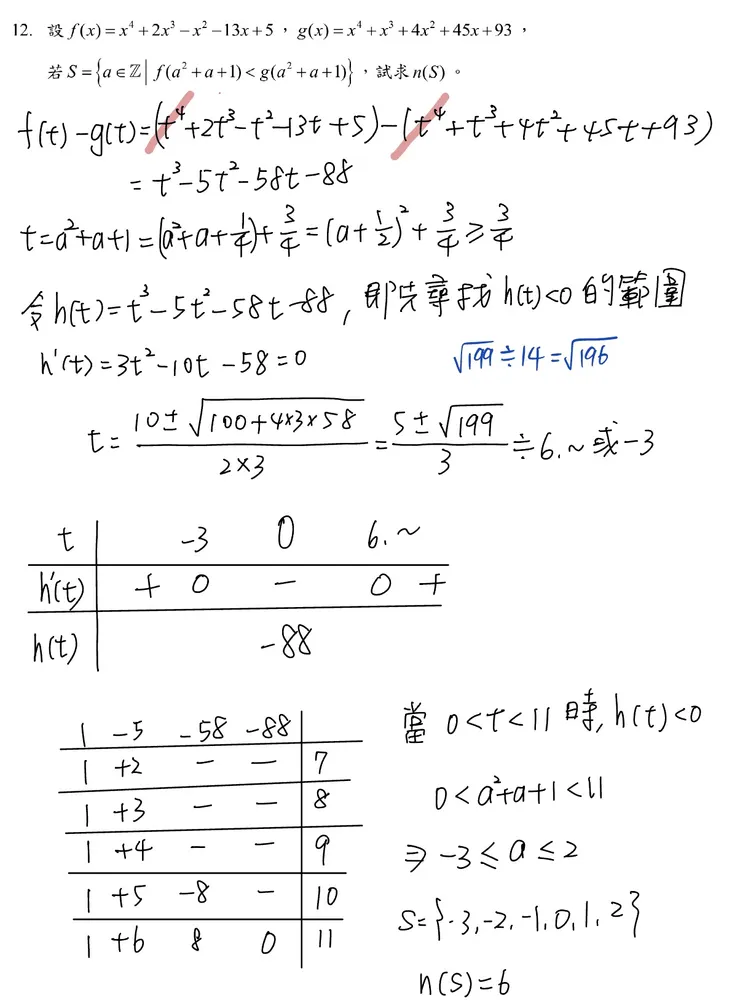 12. 設 f(x)=x⁴+2x³−x²−13x+5，g(x)=x⁴+x³+4x²+45x+93，
若 S={a∈ℤ| f(a²+a+1)<g(a²+a+1)}，試求 n(S)。
f(t)-g(t)=(t⁴+2t³-t²-13t+5)-(t⁴+t³+4t²+45t+93)
=t³-5t²-58t-88
t=a²+a+1=(a²+a+1/4)+3/4=(a+1/2)²+3/4≥3/4
令h(t)=t³-5t²-58t-88, 即先尋找h(t)<0的範圍
h'(t)=3t²-10t-58=0
√199≒14=√196
t=(10±√(100+4×3×58))/(2×3)=(5±√199)/3≒6.~或-3
t -3 0 6.~
h'(t) + 0 - 0 +
h(t) -88
1 -5 -58 -88
1 +2 - - 7
1 +3 - - 8
1 +4 - - 9
1 +5 -8 - 10
1 +6 8 0 11
當 0<t<11時, h(t)<0
0<a²+a+1<11
⇒ -3≤a≤2
S={-3,-2,-1,0,1,2}
n(S)=6